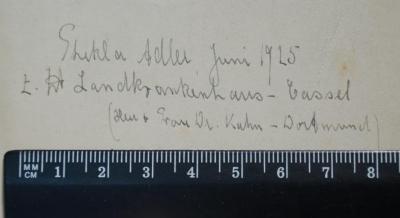 Thekla Adler Juni 1925
z. Zt Landkrankenhaus - Cassel
(Herr & Frau Dr. Kahn - Dortmund)
MM
CM 1 2 3 4 5 6 7 8